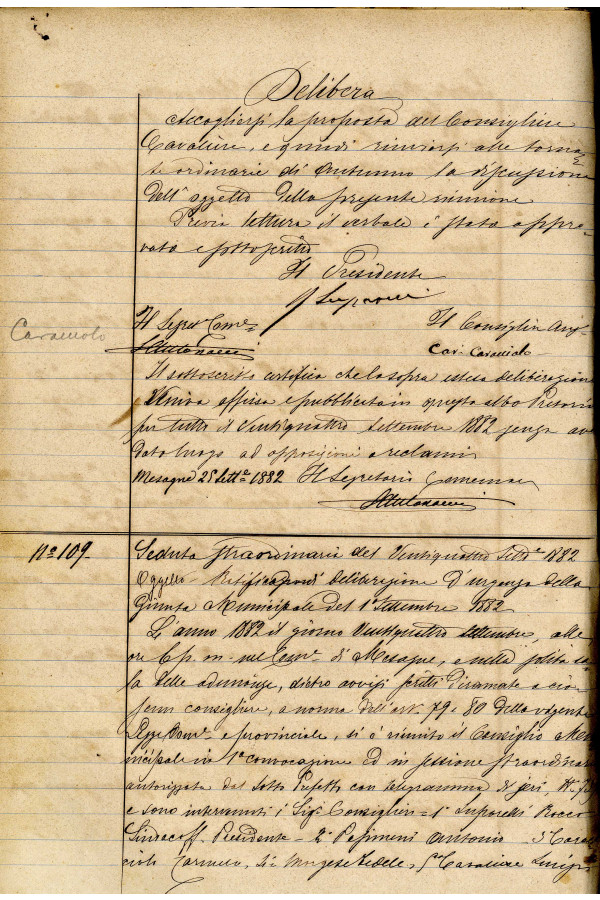 Delibera
Accogliersi la proposta del Consigliere
Cavaliere, e quindi rinviarsi alle torna=
te ordinarie di Autunno la discussione
dell'oggetto della presente riunione
Previa lettura il verbale è stato appro=
vato e sottoscritto
Il Presidente
Caracciolo
Il Segret. Com.le
Il Consiglier Anz.
Car. Caracciolo
Il sottoscritto certifica che la sopra estesa deliberazione
veniva affissa e pubblicata in questo albo Pretorio
per tutto il Ventiquattro Settembre 1882 senza aver
dato luogo ad opposizioni o reclami
Mesagne 25 Sett.e 1882 Il Segretario Comunale
N.o 109.
Seduta straordinaria del Ventiquattro Sett.e 1882
Oggetto - Ratifica di deliberazione d'urgenza della
Giunta Municipale del 1° Settembre 1882
L'anno 1882 il giorno Ventiquattro Settembre, alle
ore 6 p. m. nel Com.e di Mesagne, e nella solita sa=
la delle adunanze, dietro avvisi scritti diramati a cia=
scun consigliere, a norma dell'art. 79 e 80 della vigente
Legge Com.e e provinciale, si è riunito il Consiglio Mu=
nicipale in 1a convocazione ed in sessione straordinaria
autorizzata dal Sotto Prefetto con telegramma di jeri,
e sono intervenuti i Sig.i Consiglieri = 1°
Sindaco ff. Presidente - 2° Antonio - 3° Carac=
ciolo Carmelo, 4° Morgese Fedele, 5° Cavaliere Luigi